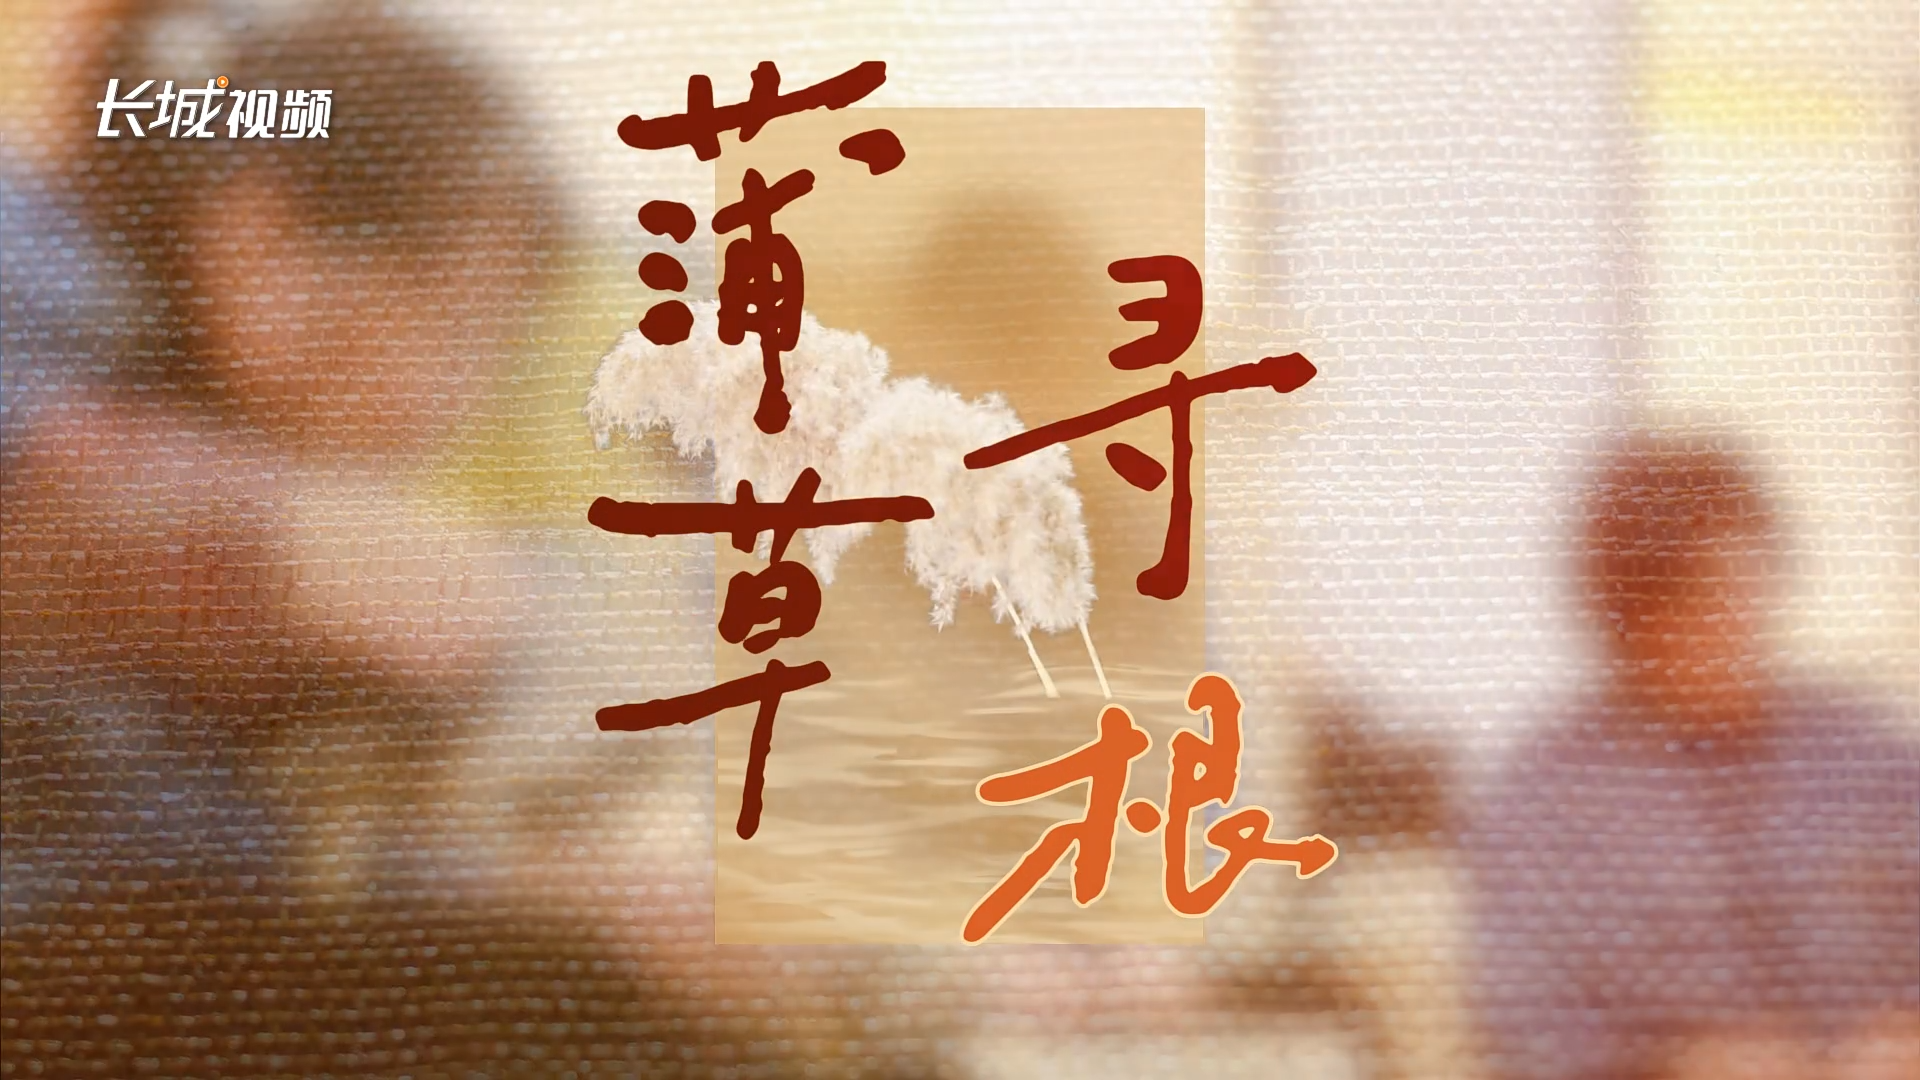 长城视频
蒲草
寻根